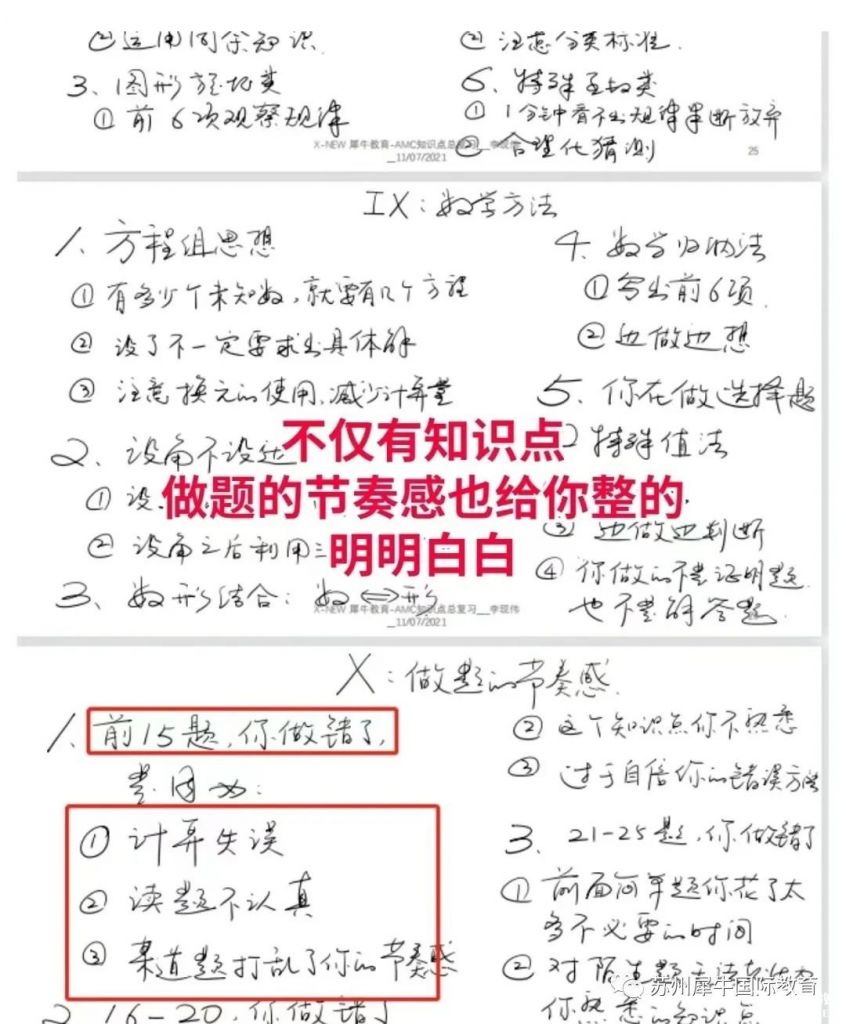 ②运用同余知识.
3、图形类
①前6项观察规律
②注意分类标准.
6、特殊类
①1分钟中看不出规律果断放弃
②合理化猜测
X-NEW 犀牛教育-AMC知识点总复习__李现伟
_11/07/2021
25
IX:数学方法
1、方程组思想
①有多少个未知数,就要有几个方程
②设了不一定要求出具体解
③注意换元的使用,减少计算量
2、设角不设边
①设
②设角之后利用三
3、数形结合:数⇔形
4、数学归纳法
①写出前6项.
②边做边想
5、你在做选择题
特殊值法
③边做边判断
④你做的不是证明题.
也不是解答题.
不仅有知识点
做题的节奏感也给你整的
明明白白
X-NEW 犀牛教育-AMC知识点总复习__李现伟
_11/07/2021
X:做题的节奏感.
1、前15题,你做错了,
是因为:
①计算失误
②读题不认真
③某道题打乱了你的节奏感
2、16-20,你做错了
②这个知识点你不熟悉
③过于自信你的错误方法
3、21-25题,你做错了
①前面简单题你花了太
多不必要的时间
②对陌生题无法
你熟悉的知识点
苏州犀牛国际教育